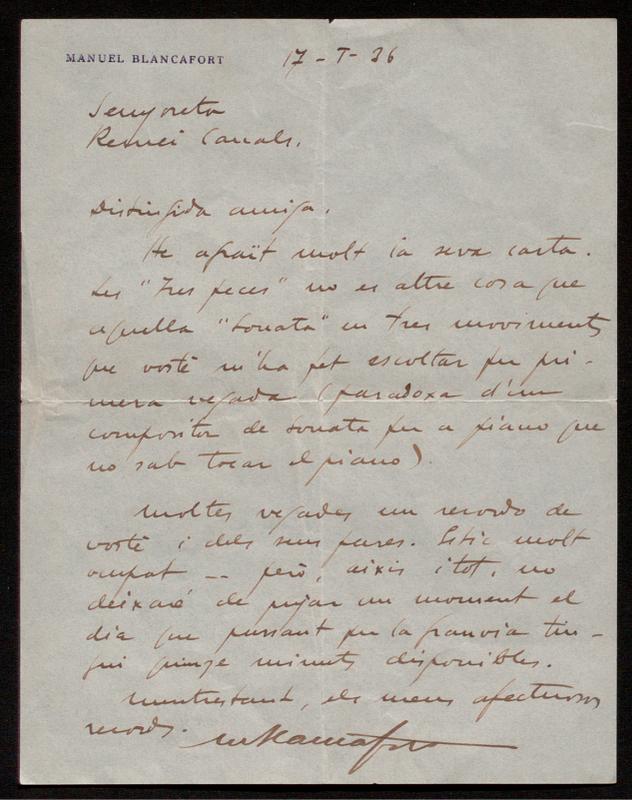 MANUEL BLANCAFORT
17-I-36
Senyoreta
Remei Canals.
Distingida amiga.
He agraït molt la seva carta.
Les "Tres peces" no es altre cosa que
aquella "Sonata" en tres moviments
que vostè m'ha fet escoltar per pri-
mera vegada (paradoxa d'un
compositor de sonata per a piano que
no sab tocar el piano).
Moltes vegades em recordo de
vostè i dels seus pares. Estic molt
ocupat -- però, aixis i tot, no
deixaré de pujar un moment el
dia que passant per la granvia tin-
gui quinze minuts disponibles.
Mentrestant, els meus afectuosos
records.
M Blancafort